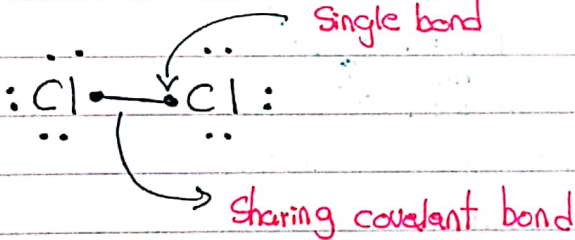 Single bond
:Cl•—•Cl:
Sharing covalent bond